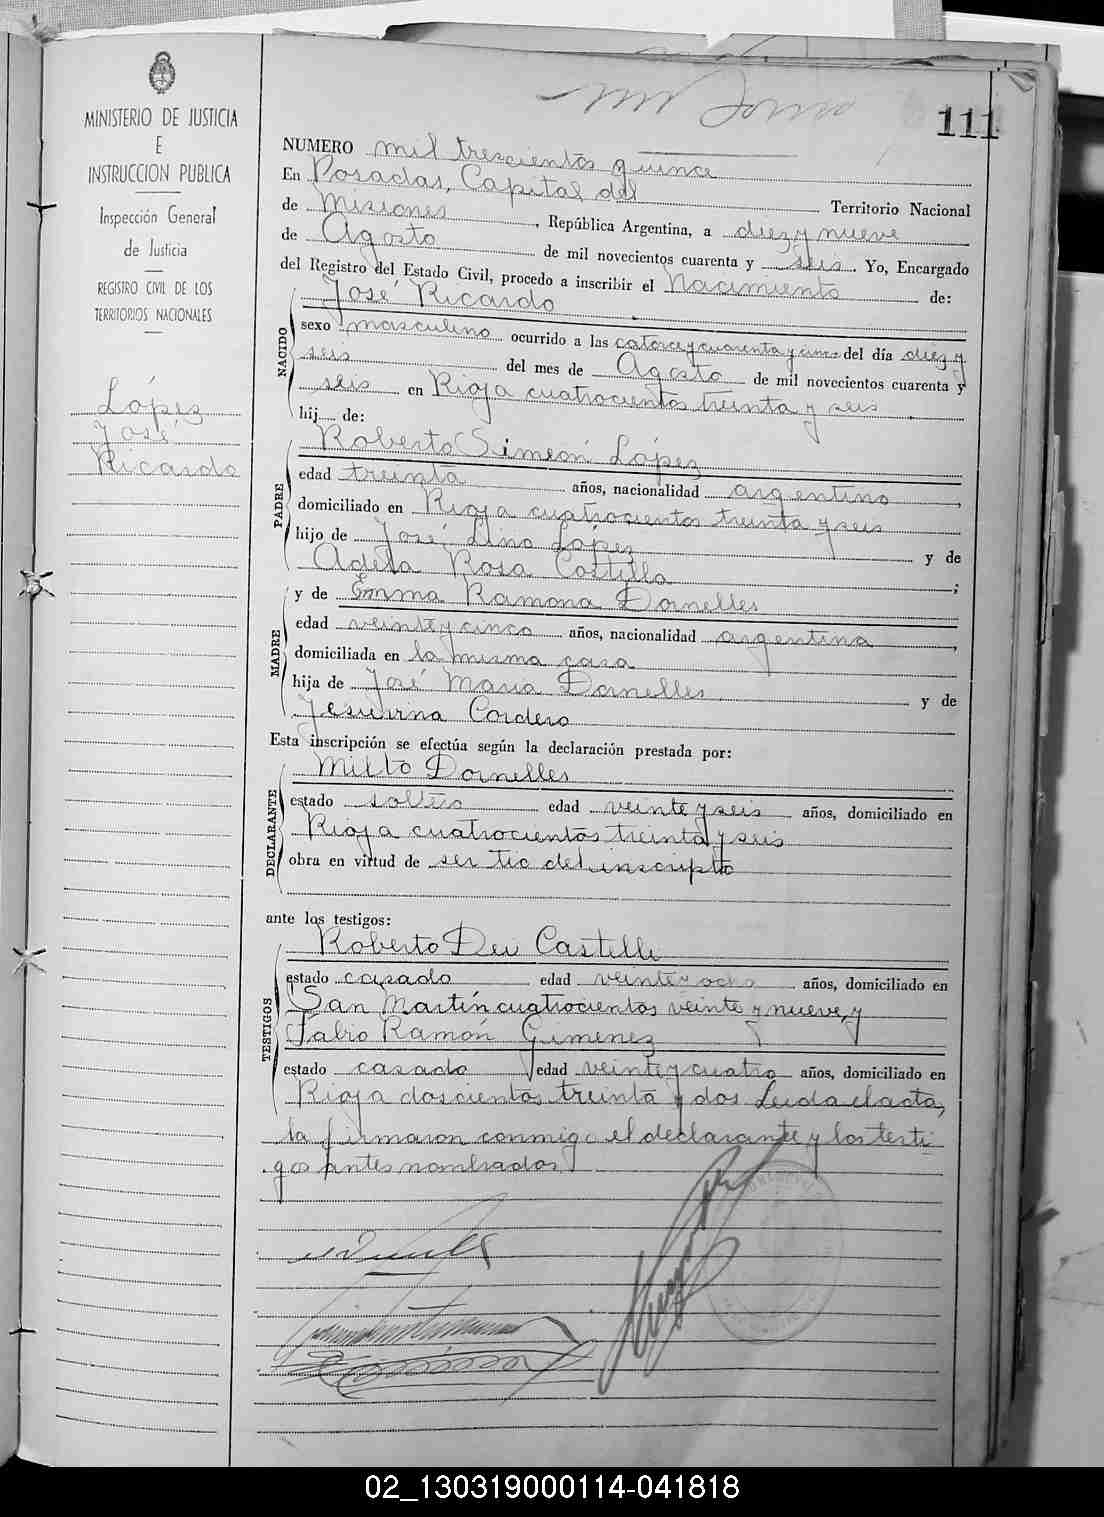 111
MINISTERIO DE JUSTICIA
E
INSTRUCCION PUBLICA
Inspección General
de Justicia
REGISTRO CIVIL DE LOS
TERRITORIOS NACIONALES
López
José
Ricardo
NUMERO mil trescientos quince
En Posadas, Capital del Territorio Nacional
de Misiones, República Argentina, a diez y nueve
de Agosto de mil novecientos cuarenta y seis. Yo, Encargado
del Registro del Estado Civil, procedo a inscribir el Nacimiento de:
NACIDO
José Ricardo
sexo masculino ocurrido a las catorce y cuarenta y cinco del día diez y
seis del mes de Agosto de mil novecientos cuarenta y
seis en Rioja cuatrocientos treinta y seis.
hij de:
PADRE
Roberto Simeón López
edad treinta años, nacionalidad argentino,
domiciliado en Rioja cuatrocientos treinta y seis
hijo de José Lino López y de
Adela Rosa Costilla;
MADRE
y de Emma Ramona Dornelles
edad veinte y cinco años, nacionalidad argentina,
domiciliada en la misma casa
hija de José María Dornelles y de
Jesuirina Cordero
Esta inscripción se efectúa según la declaración prestada por:
DECLARANTE
Milto Dornelles
estado soltero edad veinte y seis años, domiciliado en
Rioja cuatrocientos treinta y seis
obra en virtud de ser tío del inscripto
ante los testigos:
TESTIGOS
Roberto Castelli
estado casado edad veinte y ocho años, domiciliado en
San Martín cuatrocientos veinte y nueve, y
Fabio Ramón Gimenez
estado casado edad veinte y cuatro años, domiciliado en
Rioja doscientos treinta y dos Leida el acta,
la firmaron conmigo el declarante y los testi
gos antes nombrados.
02_130319000114-041818